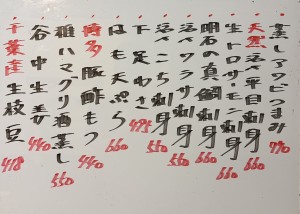 蒸しアワビつまみ 770
天然活〆平目刺身 660
生トロサーモン刺身 660
明石の真鯛刺身 660
刺身 550
刺身 550
下足わさ 495
はも天ぷら 660
博多 酢もつ 440
ハマグリ酒蒸し 550
谷中生姜 440
千葉産生枝豆 418